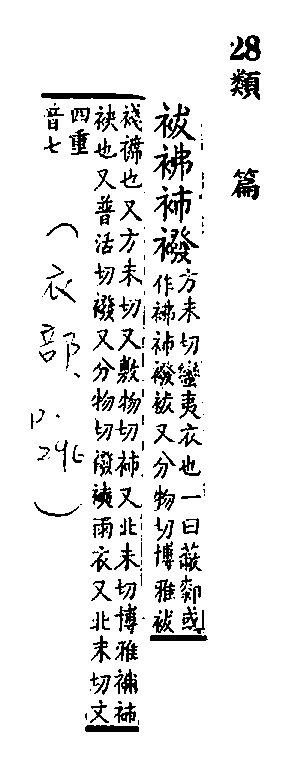 28 類篇
袚襏
方末切蠻夷衣也一曰蔽䣛或
作襏袚又分物切博雅袚
也又方未切又敷物切又北末切博雅補
袂也又普活切襏又分物切襏襫雨衣又北末切文
四重
音七
(衣部、
p.
296)